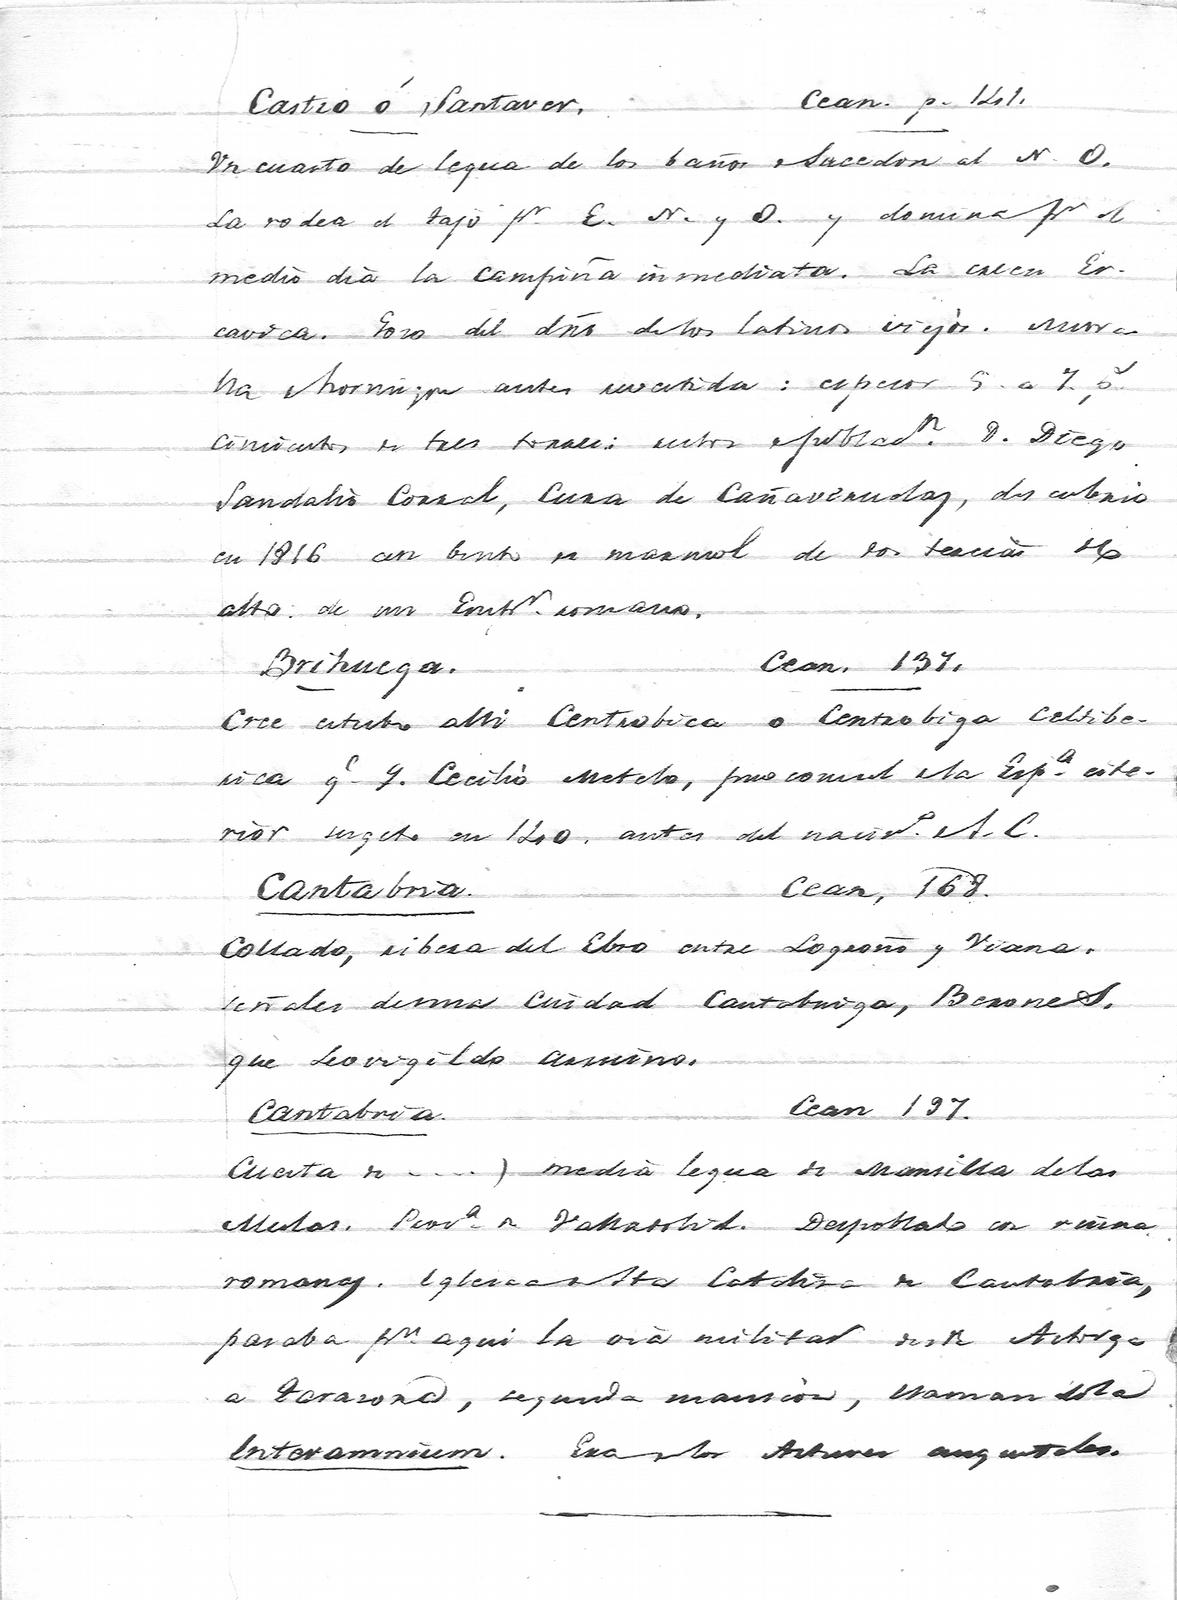 Castro ó Santaver. Cean. p. 141.
Un cuarto de legua de los baños Sacedon al N. O.
La rodea el Tajo pr E. N. y O. y domina pr el
medio dia la campiña inmediata. La creen Er-
cavica. Gozo del dro de los latinos viejos. Mura-
lla hormigon antes revestida: espesor 5 a 7 p
cimientos de tres torres: restos poblacn. D. Diego
Sandalio Corral, Cura de Cañaveruelas, descubrio
en 1816 un busto de marmol de dos tercias
alto de un Empr. romano.
Brihuega. Cean. 137.
Cree estubo alli Centrobica o Centrobiga celtibe-
rica q. Q. Cecilio Metelo, proconsul la Espa. cite-
rior sugeto en 140. antes del nacim. J. C.
Cantabria. Cean, 168.
Collado, ribera del Ebro entre Logroño y Viana.
señales de una Ciudad Cantabriga, Berones.
que Leovigildo arruino.
Cantabria. Cean 197.
Cuesta de ....) media legua de Mansilla de las
Mulas. Prova. de Valladolid. Despoblado con ruinas
romanas. Iglesia Sta Catalina de Cantabria,
pasaba pr aqui la via militar desde Astorga
a Tarazona, segunda mansion, llamandola
Interamnium. Era los Astures augustales.